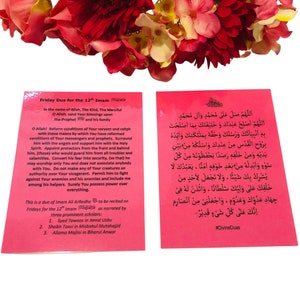 Friday Dua for the 12th Imam
In the name of Allah, The Kind, The Merciful
O Allah, send your blessings upon
the Prophet ﷺ and his family
O Allah! Before conditions of Your servant and caliph
with those means by which You have reformed
conditions of Your messengers and prophets. Surround
him with the angels and support him with the holy
spirit. Appoint protectors from the front and behind
him, (those) who would guard him from all troubles and
calamities. Convert his fear into security, (so that) he
may worship only You and does not associate anybody
with You. Do not make any of Your creatures on
authority over Your vicegerent. Permit him to fight
against Your enemies and his enemies and include me
among his helpers. Surely You possess power over
everything.
This is a due of Imam Ali Ar-Redha to be recited on
Fridays for the 12th Imam as narrated by
three prominent scholars:
1. Syed Tawoos in Jamal Usbu
2. Sheikh Tousi in Misbahul Mutahajjid
3. Allama Majlisi in Bharul Anwar
اللَّهُمَّ صَلِّ عَلَى مُحَمَّدٍ وَآلِ مُحَمَّدٍ
اللَّهُمَّ أَصْلِحْ عَبْدَكَ وَ خَلِيفَتَكَ بِمَا أَصْلَحْتَ
بِهِ أَنْبِيَاءَكَ وَرُسُلَكَ وَحُفَّهُ بِمَلَائِكَتِكَ وَأَيِّدْهُ
بِرُوحِ الْقُدُسِ مِنْ عِنْدِكَ وَاسْلُكْهُ مِنْ بَيْنِ يَدَيْهِ
وَمِنْ خَلْفِهِ رَصَداً يَحْفَظُونَهُ مِنْ كُلِّ
سُوءٍ وَأَبْدِلْهُ مِنْ بَعْدِ خَوْفِهِ أَمْناً يَعْبُدُكَ لَا
يُشْرِكُ بِكَ شَيْئاً ، وَ لَا تَجْعَلْ لِأَحَدٍ مِنْ
خَلْقِكَ عَلَى وَلِيِّكَ سُلْطَاناً ، وَائْذَنْ لَهُ فِي
جِهَادِ عَدُوِّكَ وَعَدُوِّهِ ، وَاجْعَلْنِي مِنْ أَنْصَارِهِ
إِنَّكَ عَلَى كُلِّ شَيْءٍ قَدِيرٌ-
#DivineDuas